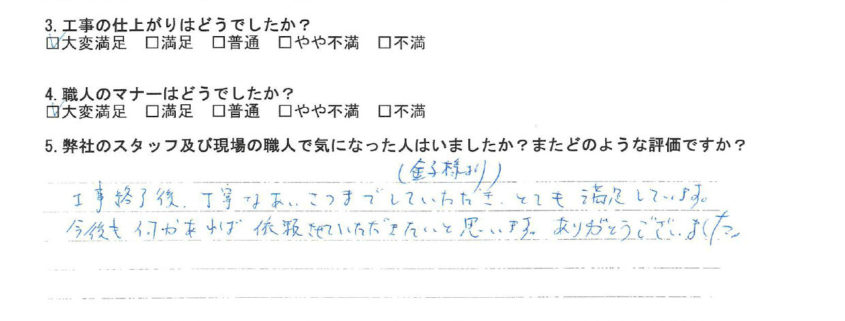 3. 工事の仕上がりはどうでしたか?
☑大変満足 □満足 □普通 □やや不満 □不満
4. 職人のマナーはどうでしたか?
☑大変満足 □満足 □普通 □やや不満 □不満
5. 弊社のスタッフ及び現場の職人で気になった人はいましたか?またどのような評価ですか?
(金子様より)
工事終了後、丁寧なあいさつまでしていただき、とても満足しています。
今後も何かあれば依頼させていただきたいと思います。ありがとうございました。